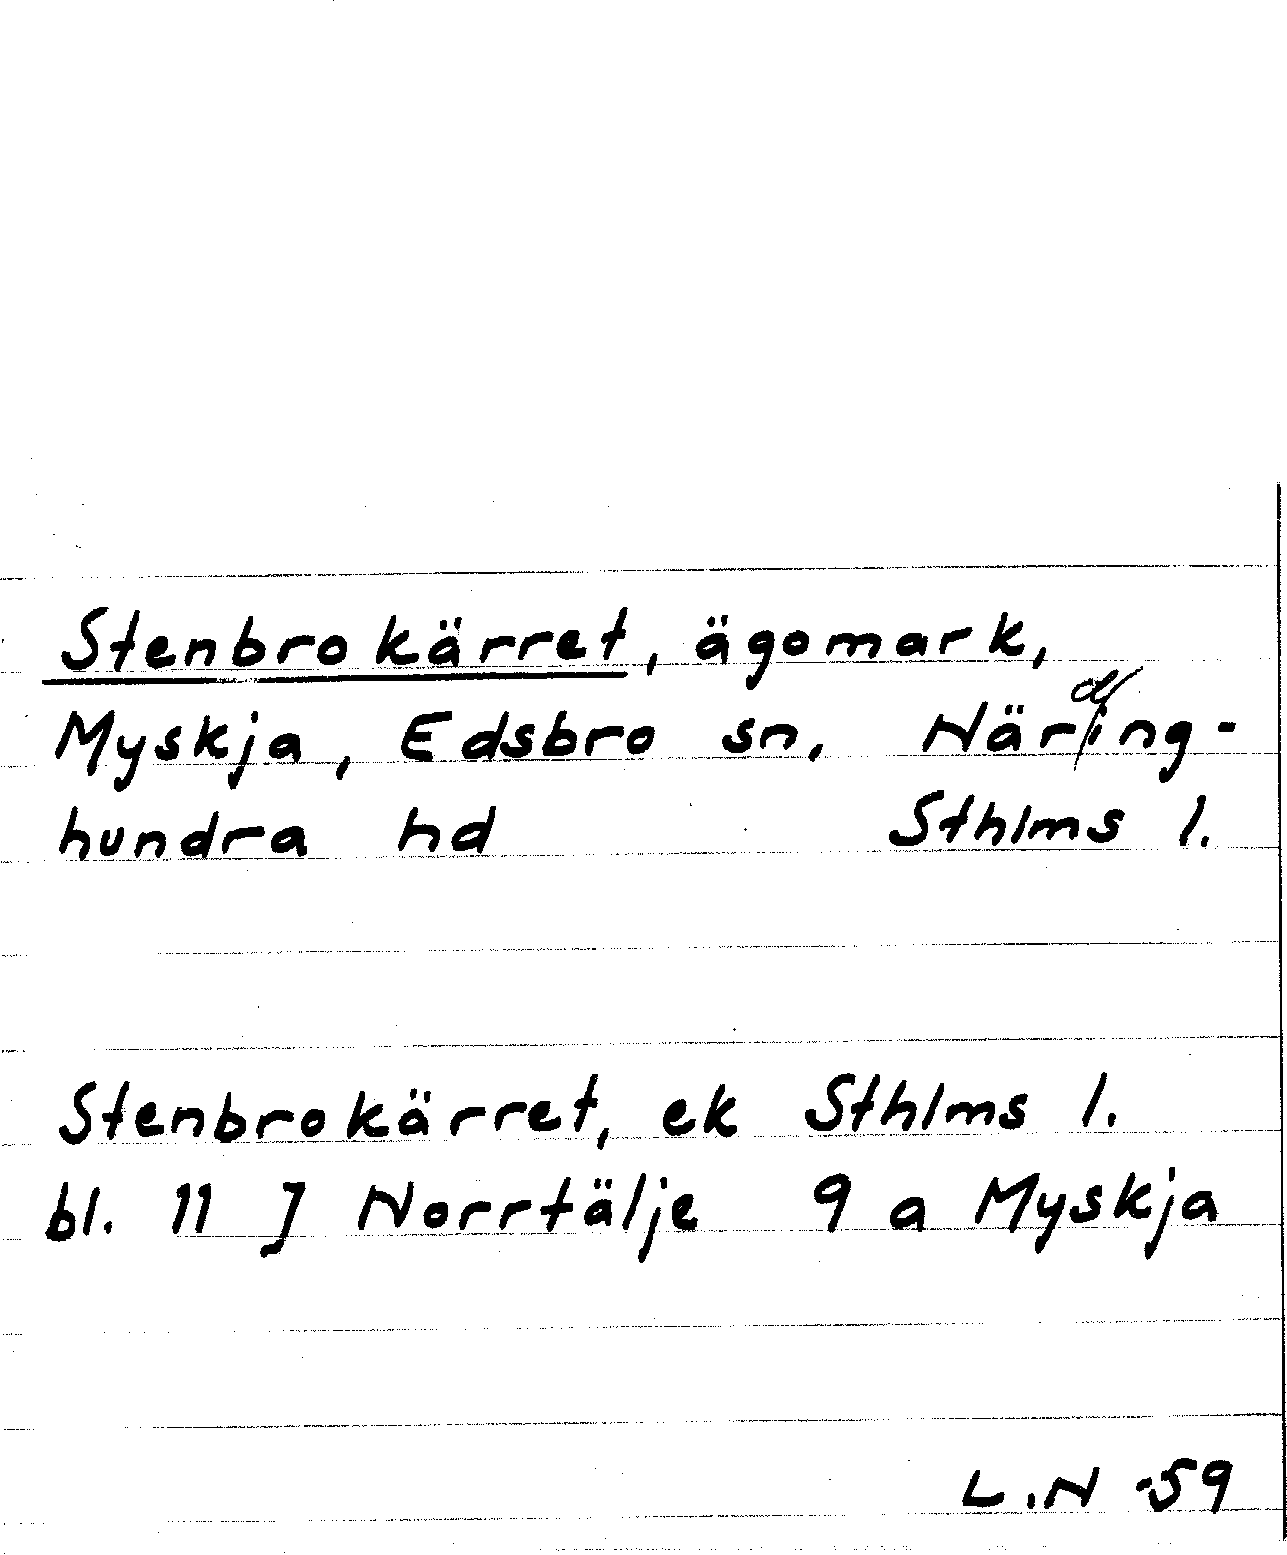 Stenbrokärret, ägomark,
Myskja, Edsbro sn, Näring-
hundra hd Sthlms l.
Stenbrokärret, ek Sthlms l.
bl. 11 J Norrtälje 9 a Myskja
L.N -59